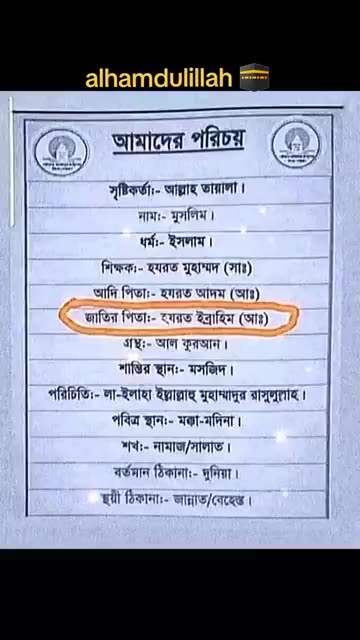 alhamdulillah 🕋
আমাদের পরিচয়
সৃষ্টিকর্তা:- আল্লাহ তায়ালা।
নাম:- মুসলিম।
ধর্ম:- ইসলাম।
শিক্ষক:- হযরত মুহাম্মদ (সাঃ)
আদি পিতা:- হযরত আদম (আঃ)
জাতির পিতা:- হযরত ইব্রাহিম (আঃ)
গ্রন্থ:- আল কুরআন।
শান্তির স্থান:- মসজিদ।
পরিচিতি:- লা-ইলাহা ইল্লাল্লাহু মুহাম্মাদুর রাসুলুল্লাহ।
পবিত্র স্থান:- মক্কা-মদিনা।
শখ:- নামাজ/সালাত।
বর্তমান ঠিকানা:- দুনিয়া।
স্থায়ী ঠিকানা:- জান্নাত/বেহেস্ত।